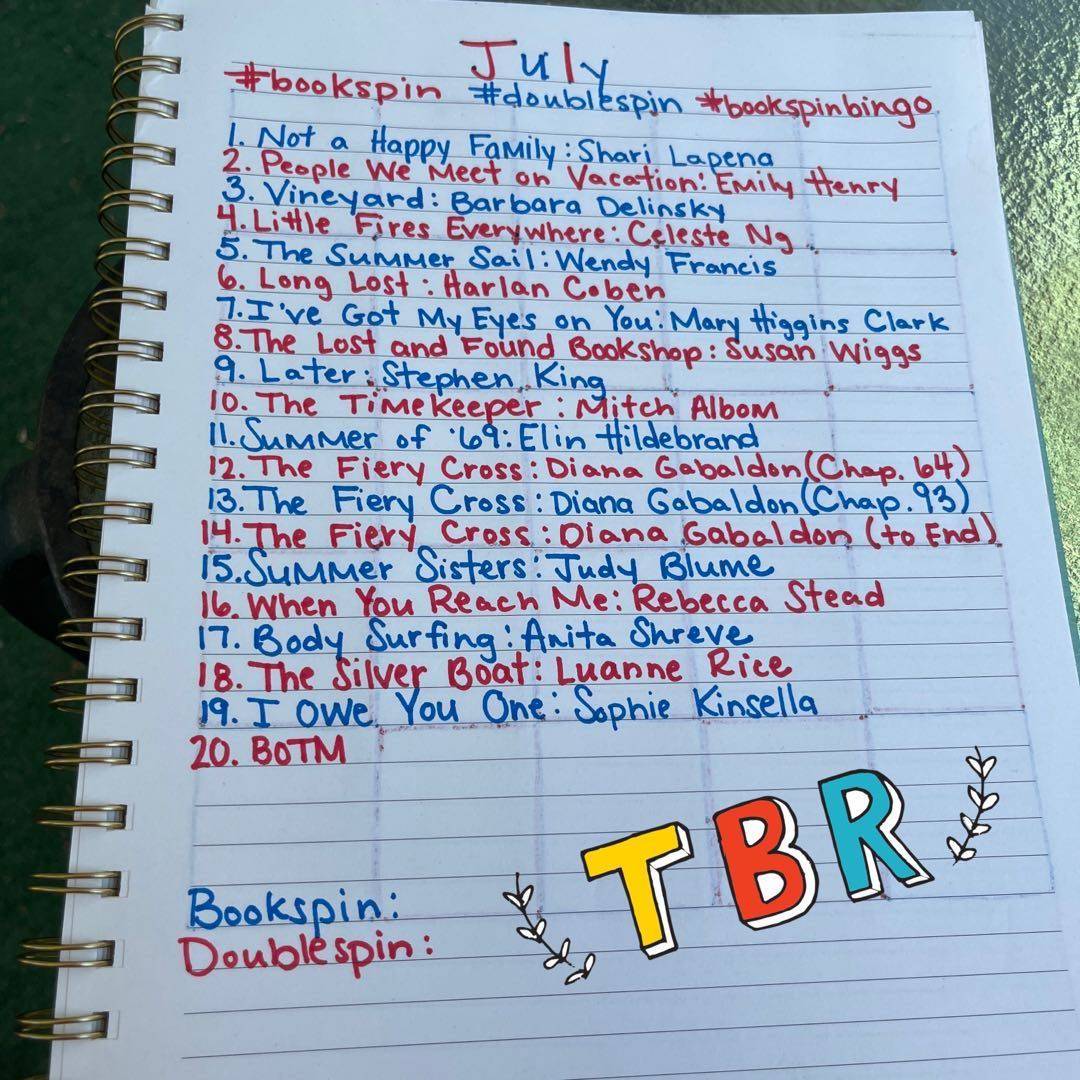 July
#bookspin #doublespin #bookspinbingo
1. Not a Happy Family: Shari Lapena
2. People We Meet on Vacation: Emily Henry
3. Vineyard: Barbara Delinsky
4. Little Fires Everywhere: Celeste Ng
5. The Summer Sail: Wendy Francis
6. Long Lost: Harlan Coben
7. I've Got My Eyes on You: Mary Higgins Clark
8. The Lost and Found Bookshop: Susan Wiggs
9. Later: Stephen King
10. The Timekeeper: Mitch Albom
11. Summer of '69: Elin Hildebrand
12. The Fiery Cross: Diana Gabaldon (Chap. 64)
13. The Fiery Cross: Diana Gabaldon (Chap. 93)
14. The Fiery Cross: Diana Gabaldon (to End)
15. Summer Sisters: Judy Blume
16. When You Reach Me: Rebecca Stead
17. Body Surfing: Anita Shreve
18. The Silver Boat: Luanne Rice
19. I Owe You One: Sophie Kinsella
20. BOTM
TBR
Bookspin:
Doublespin: